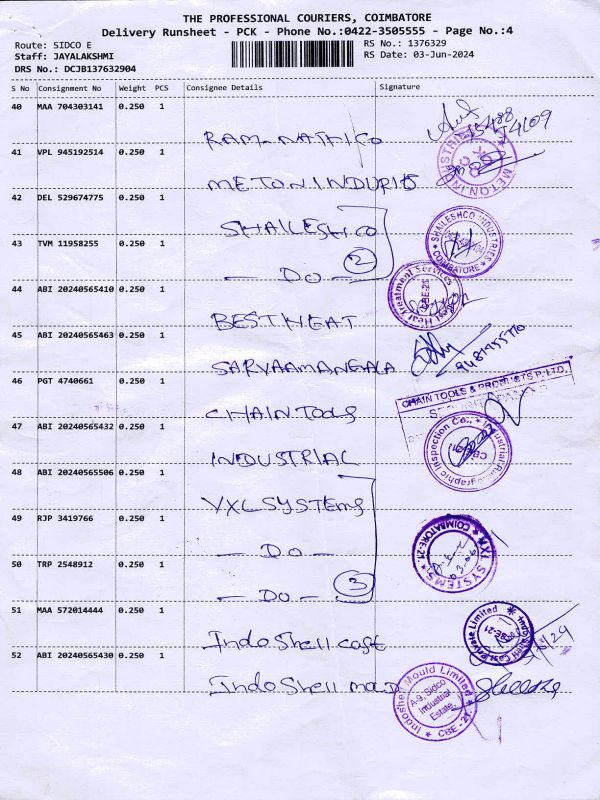 THE PROFESSIONAL COURIERS, COIMBATORE
Delivery Runsheet - PCK - Phone No.:0422-3505555 - Page No.:4
Route: SIDCO E
RS No.: 1376329
Staff: JAYALAKSHMI
RS Date: 03-Jun-2024
DRS No.: DCJB137632904
S No Consignment No Weight PCS Consignee Details Signature
40 MAA 704303141 0.250 1
RAM-NATHICO
41 VPL 945192514 0.250 1
METON INDUR
METON INDUSTRIES
42 DEL 529674775 0.250 1
SHAILESHCO
SHAILESHCO INDUSTRIES
COIMBATORE
43 TVM 11958255 0.250 1
- DO - 2
44 ABI 20240565410 0.250 1
BEST HEAT
Best Heat Treatment Services
CBE-21
45 ABI 20240565463 0.250 1
SARVAAMANGALA
46 PGT 4740661 0.250 1
CHAIN TOOLS
CHAIN TOOLS & PRODUCTS P. LTD.
47 ABI 20240565432 0.250 1
INDUSTRIAL
Industrial Radiographic Inspection Co.,
48 ABI 20240565506 0.250 1
VXL SYSTEMS
49 RJP 3419766 0.250 1
- DO -
VXL SYSTEMS
COIMBATORE-21.
50 TRP 2548912 0.250 1
- DO - 3
51 MAA 572014444 0.250 1
IndoShell cast
Indo Shell Cast Private Limited
CBE-21
52 ABI 20240565430 0.250 1
IndoShell mould
Indoshell Mould Limited
A-9, Sidco
Industrial
Estate,
CBE - 21.